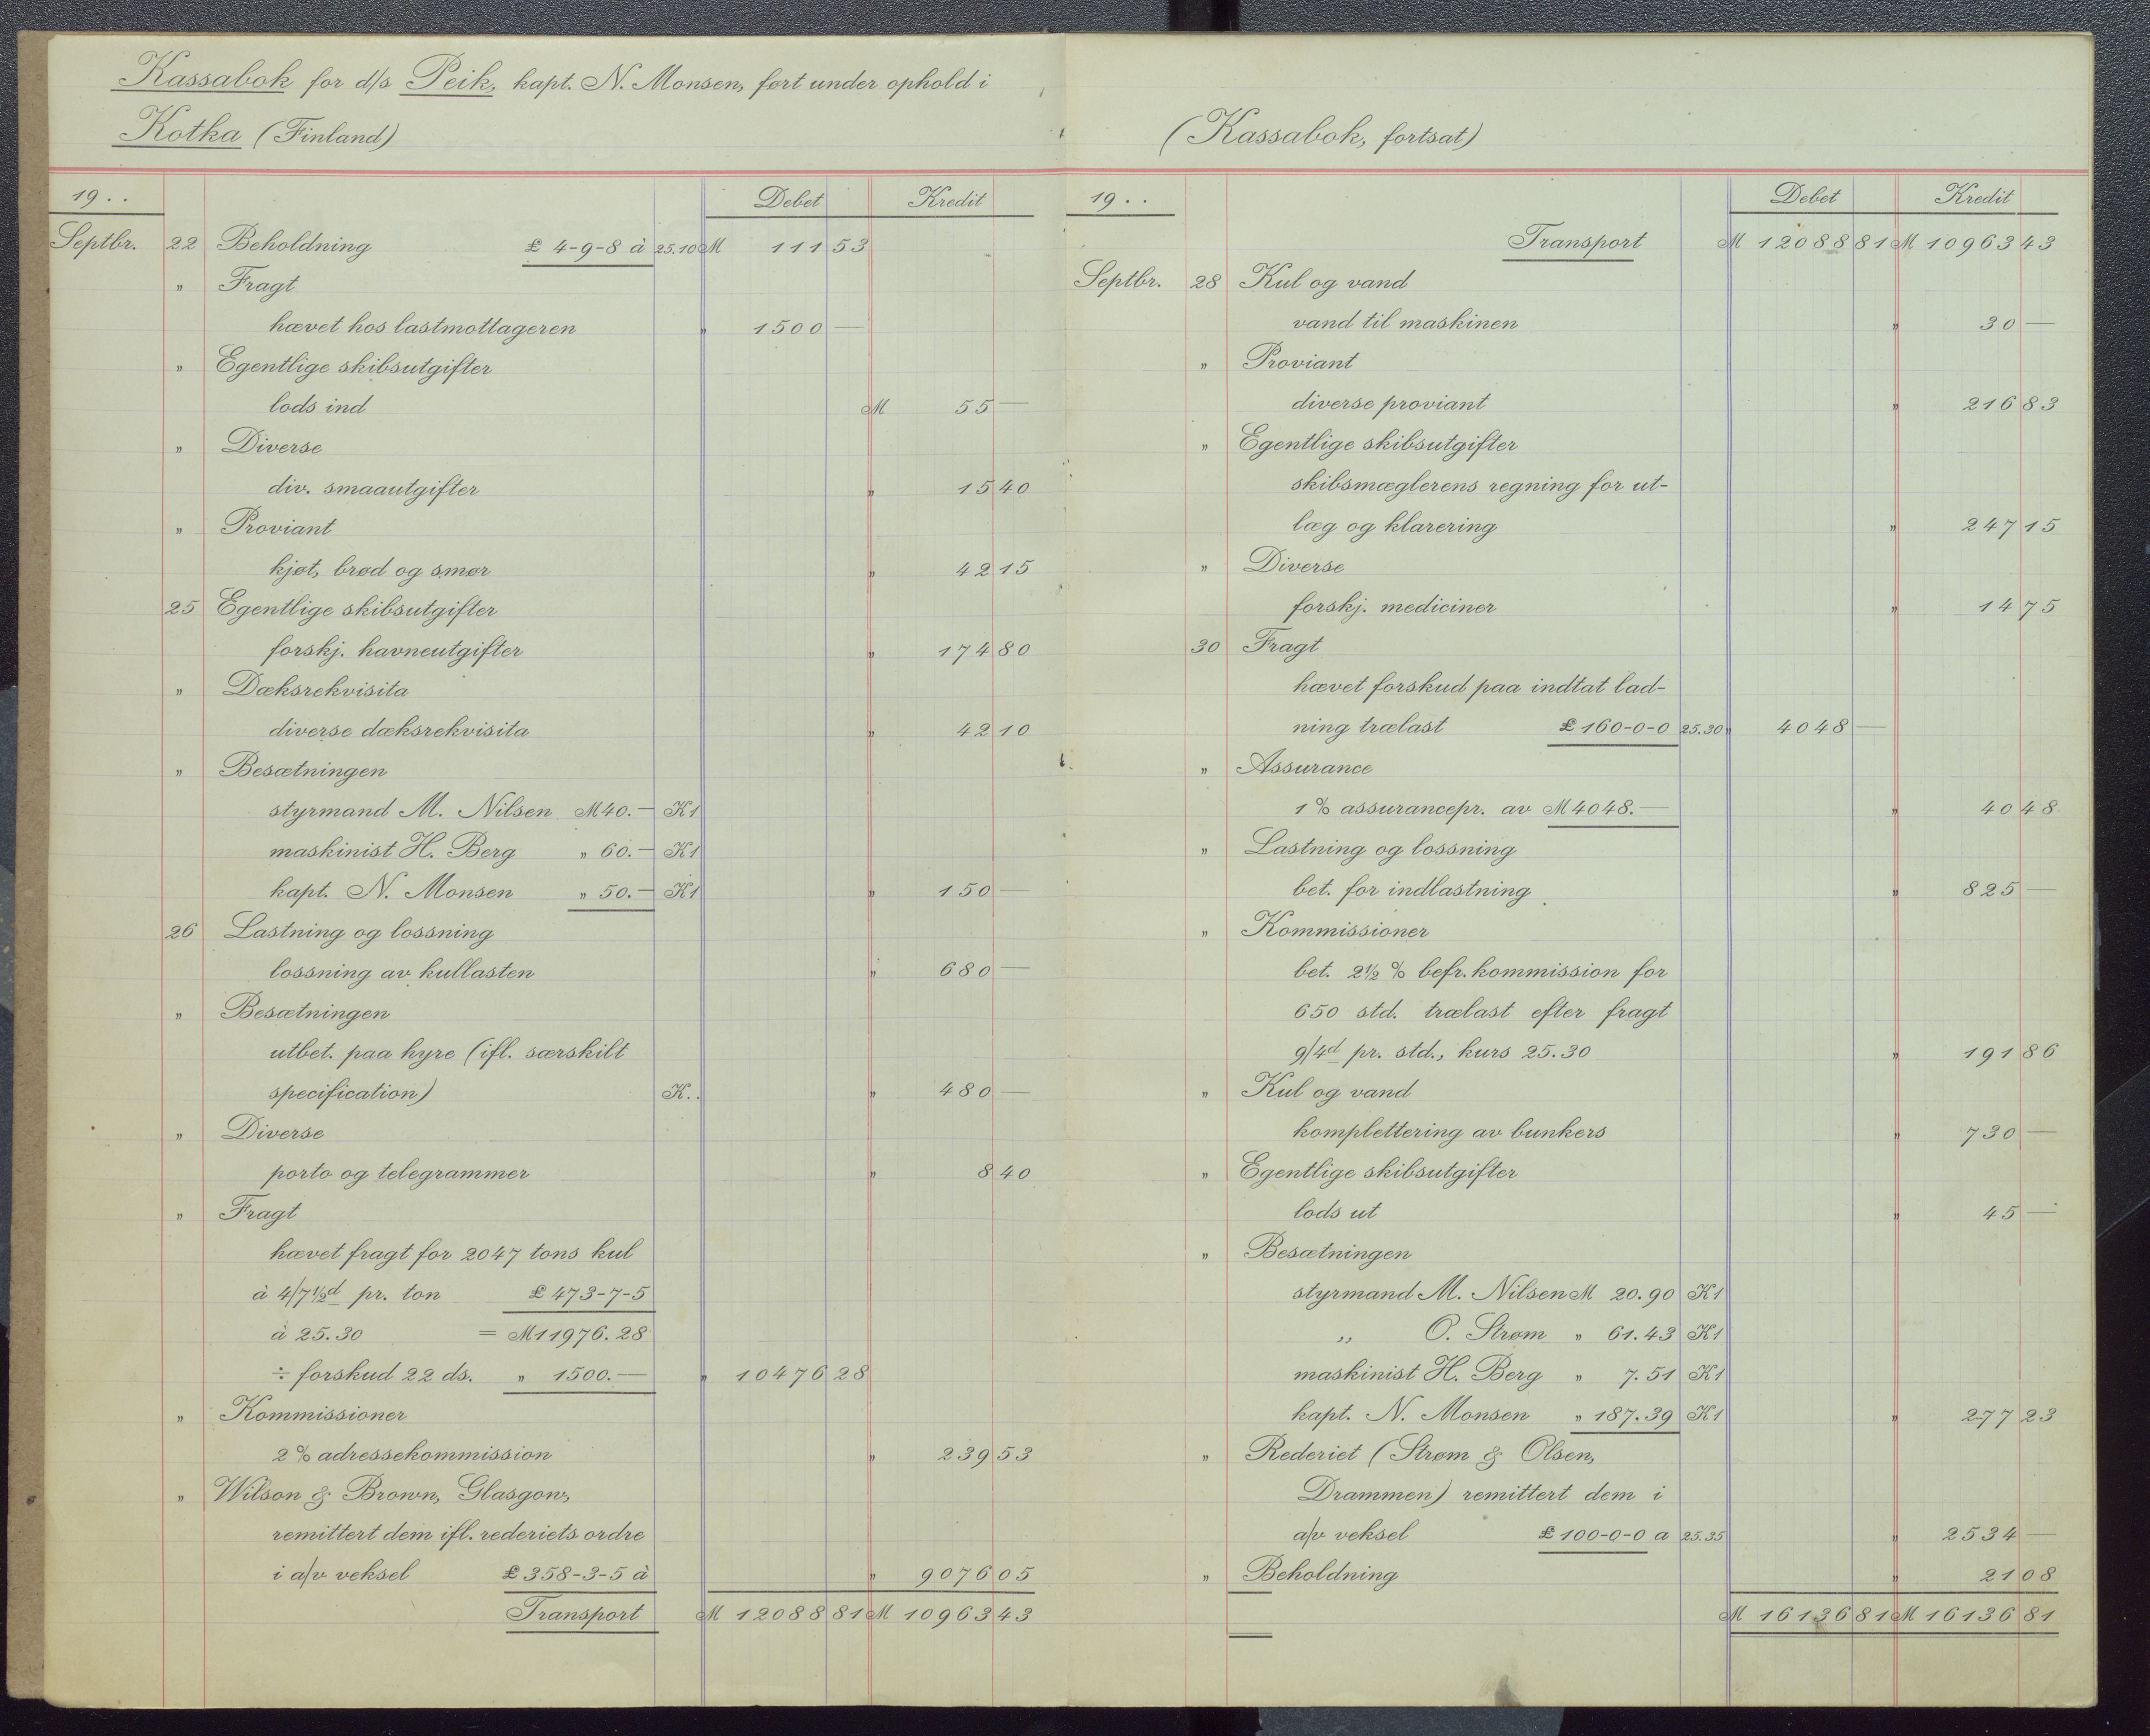 Kassabok for d/s Peik, kapt. N. Monsen, ført under ophold i
Kotka (Finland)
19..
Debet Kredit
Septbr. 22 Beholdning £ 4-9-8 à 25.10 M 111 53
" Fragt
hævet hos lastmottageren " 1500 —
" Egentlige skibsutgifter
lods ind M 55 —
" Diverse
div. smaautgifter " 15 40
" Proviant
kjøt, brød og smør " 42 15
25 Egentlige skibsutgifter
forskj. havneutgifter " 174 80
" Dæksrekvisita
diverse dæksrekvisita " 42 10
" Besætningen
styrmand M. Nilsen M 40.— K1
maskinist H. Berg " 60.— K1
kapt. N. Monsen " 50.— K1 " 150 —
26 Lastning og lossning
lossning av kullasten " 680 —
" Besætningen
utbet. paa hyre (ifl. særskilt
specification) K.. " 480 —
" Diverse
porto og telegrammer " 8 40
" Fragt
hævet fragt for 2047 tons kul
à 4/7½d pr. ton £ 473-7-5
à 25.30 = M 11976.28
÷ forskud 22 ds. " 1500.— " 10476 28
" Kommissioner
2% adressekommission " 239 53
" Wilson & Brown, Glasgow,
remittert dem ifl. rederiets ordre
i a/v veksel £ 358-3-5 à " 9076 05
Transport M 12088 81 M 10963 43
(Kassabok, fortsat)
19..
Debet Kredit
Transport M 12088 81 M 10963 43
Septbr. 28 Kul og vand
vand til maskinen " 30 —
" Proviant
diverse proviant " 216 83
" Egentlige skibsutgifter
skibsmæglerens regning for ut-
læg og klarering " 247 15
" Diverse
forskj. mediciner " 14 75
30 Fragt
hævet forskud paa indtat lad-
ning trælast £ 160-0-0 25.30 " 4048 —
" Assurance
1% assurancepr. av M 4048.— " 40 48
" Lastning og lossning
bet. for indlastning " 825 —
" Kommissioner
bet. 2½ % befr. kommission for
650 std. trælast efter fragt
9/4d pr. std., kurs 25.30 " 191 86
" Kul og vand
komplettering av bunkers " 730 —
" Egentlige skibsutgifter
lods ut " 45 —
" Besætningen
styrmand M. Nilsen M 20.90 K1
" O. Strøm " 61.43 K1
maskinist H. Berg " 7.51 K1
kapt. N. Monsen " 187.39 K1 " 277 23
" Rederiet (Strøm & Olsen,
Drammen) remittert dem i
a/v veksel £ 100-0-0 a 25.35 " 2534 —
" Beholdning " 21 08
M 16136 81 M 16136 81